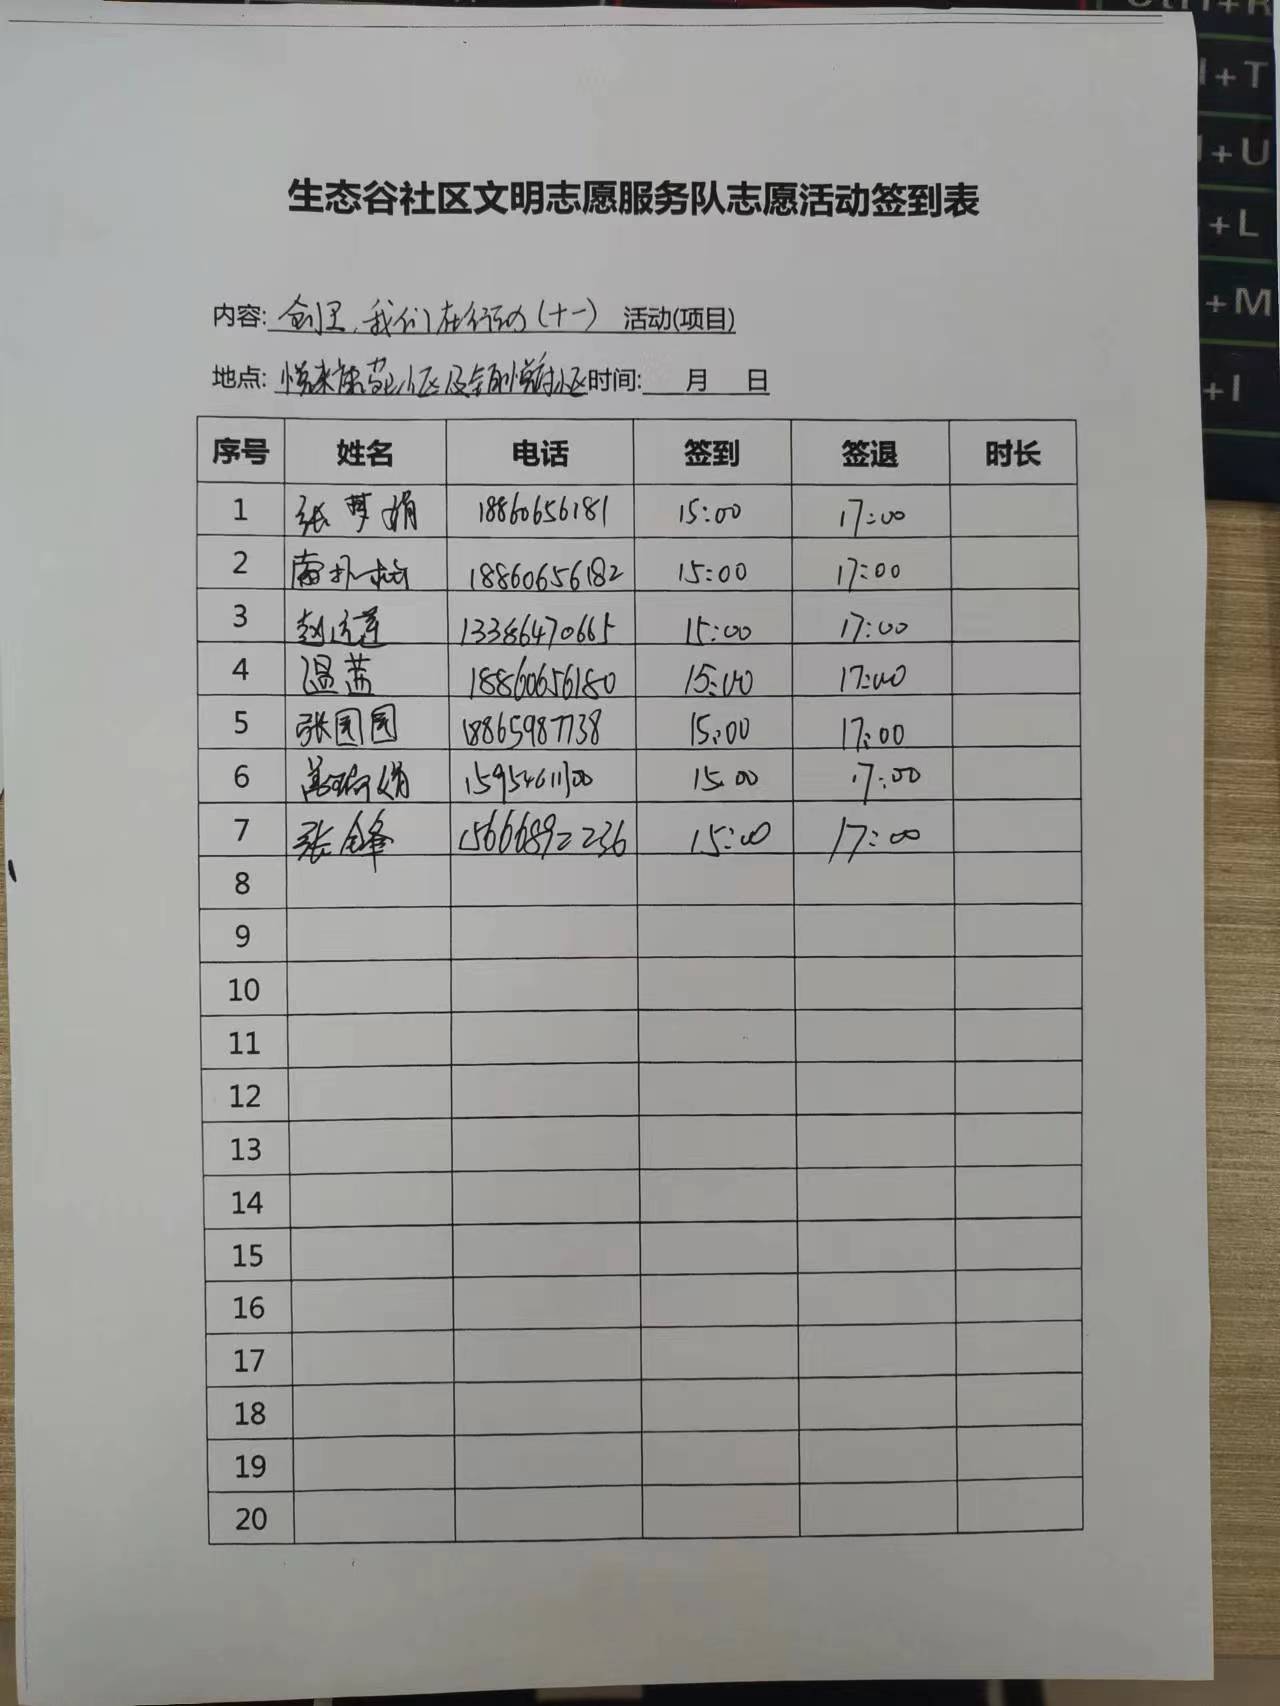 Ctrl+R
+T
+U
+L
+M
+I
生态谷社区文明志愿服务队志愿活动签到表
内容: 创卫,我们在行动(十一) 活动(项目)
地点: 小区及金悦府小区 时间: 月 日
序号 姓名 电话 签到 签退 时长
1 张梦娟 18860656181 15:00 17:00
2 18860656182 15:00 17:00
3 赵连莲 13386470665 15:00 17:00
4 温茜 18860656180 15:00 17:00
5 张园园 18865987738 15:00 17:00
6 娟 15:00 17:00
7 张金峰 15666892236 15:00 17:00
8
9
10
11
12
13
14
15
16
17
18
19
20